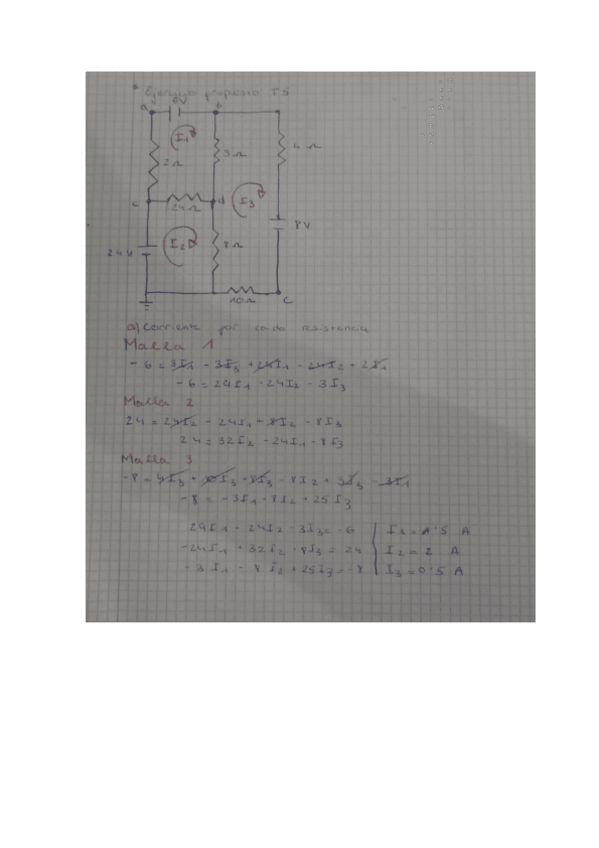 * Ejercicio propuesto T5
a 6V b
I1
2Ω 3Ω 4Ω
c 24Ω d I3
24V I2 8Ω 8V
10Ω C
a) Corriente por cada resistencia
Malla 1
-6 = 3I1 - 3I3 + 24I1 - 24I2 + 2I1
-6 = 29I1 - 24I2 - 3I3
Malla 2
24 = 24I2 - 24I1 + 8I2 - 8I3
24 = 32I2 - 24I1 - 8I3
Malla 3
-8 = 4I3 + 10I3 + 8I3 - 8I2 + 3I3 - 3I1
-8 = -3I1 - 8I2 + 25I3
29I1 - 24I2 - 3I3 = -6 | I1 = 1'5 A
-24I1 + 32I2 - 8I3 = 24 | I2 = 2 A
-3I1 - 8I2 + 25I3 = -8 | I3 = 0'5 A